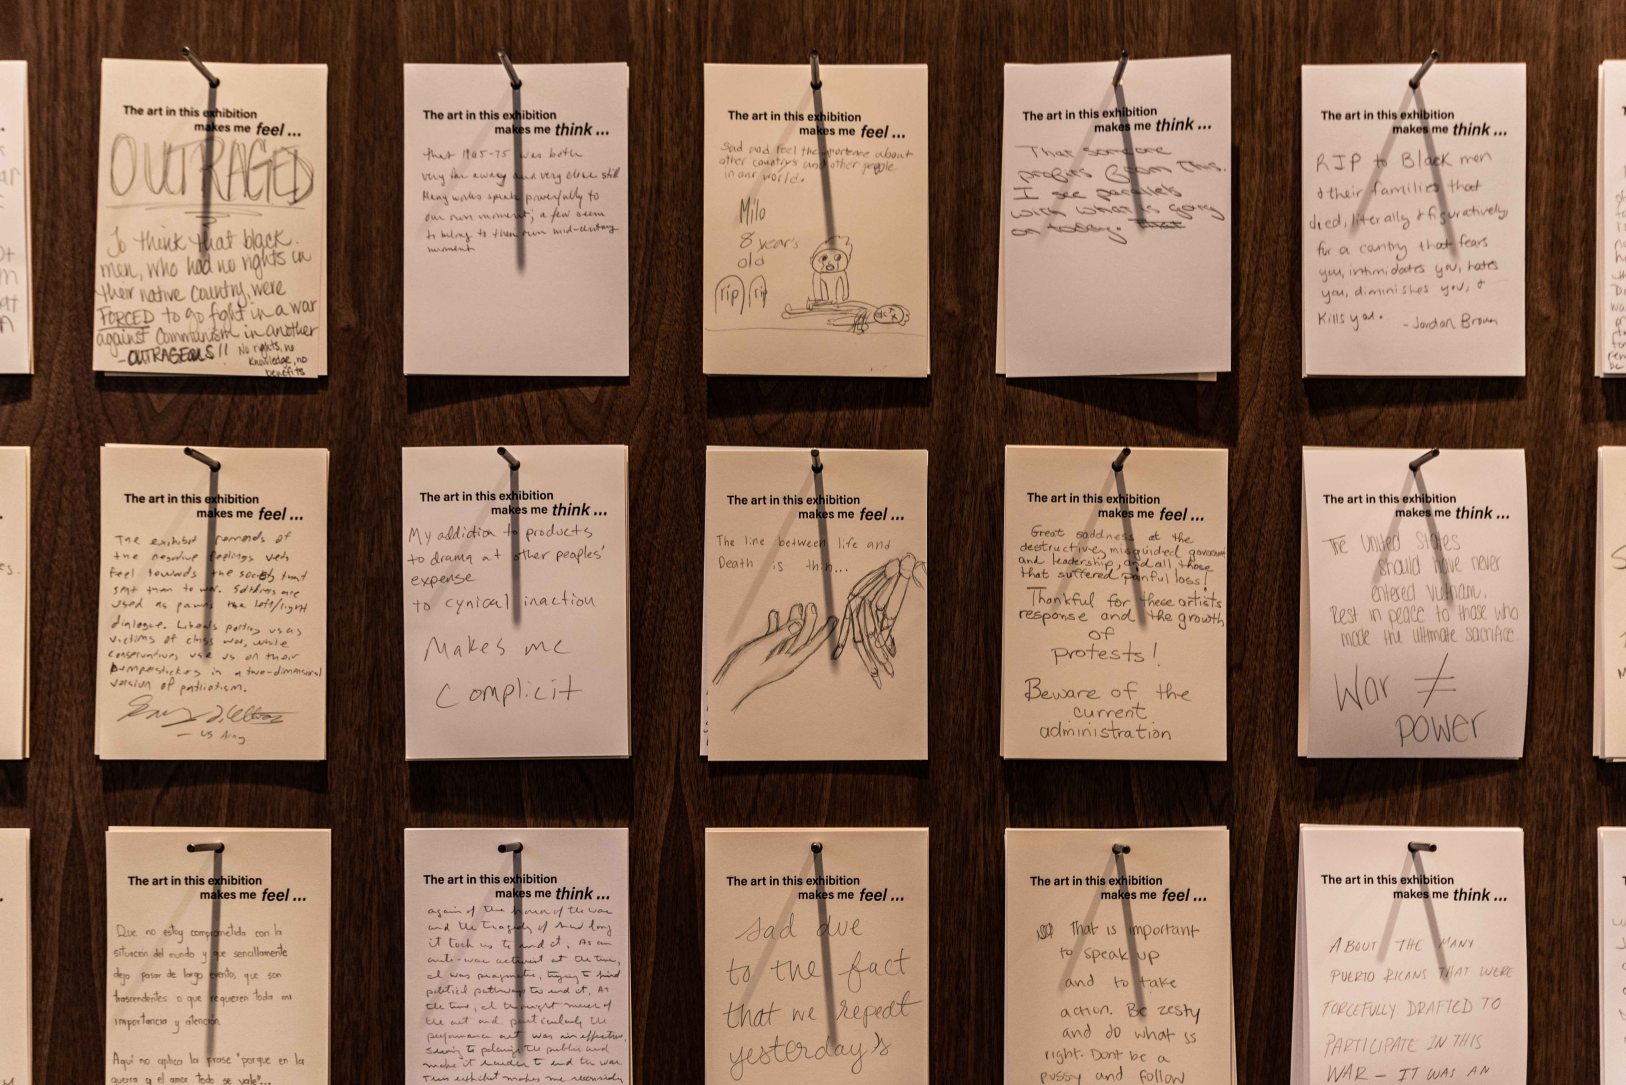 The art in this exhibition
makes me feel ...
OUTRAGED
To think that black
men, who had no rights in
their native country, were
FORCED to go fight in a war
against Communism in another
- OUTRAGEOUS!!
No rights, no
knowledge, no
benefits
The art in this exhibition
makes me think ...
that 1965-75 was both
very far away and very close still
Many works speak powerfully to
our own moment; a few seem
to belong to their own mid-century
moment
The art in this exhibition
makes me feel ...
Sad and feel the importence about
other countrys and other people
in our world.
Milo
8 year's
old
rip
rip
The art in this exhibition
makes me think ...
That someone
profits from this.
I see parallels
with what is going
on today.
The art in this exhibition
makes me think ...
RIP to Black men
& their families that
died, literally & figuratively,
for a country that fears
you, intimidates you, hates
you, diminishes you, &
kills you.
- Jordan Brown
The art in this exhibition
makes me feel ...
The exhibit reminds of
the negative feelings vets
feel towards the society that
sent them to war. Soldiers are
used as pawns in the left/right
dialogue. Liberals us as
victims of class war, while
conservatives use us on their
bumperstickers in a two-dimensional
version of patriotism.
- US Army
The art in this exhibition
makes me think ...
My addiction to products
to drama at other peoples'
expense
to cynical inaction
Makes me
Complicit
The art in this exhibition
makes me feel ...
The line between life and
Death is thin...
The art in this exhibition
makes me feel ...
Great saddness at the
destructive, misguided government
and leadership, and all those
that suffered painful loss!
Thankful for these artists
response and the growth
of
protests!
Beware of the
current
administration
The art in this exhibition
makes me think ...
The United States
should have never
entered Vietnam.
Rest in peace to those who
made the ultimate sacrifice.
War ≠
power
The art in this exhibition
makes me feel ...
Que no estoy comprometida con la
situación del mundo y que sencillamente
dejo pasar de largo evento, que son
trascendentes o que requieren toda mi
importancia y atención.
Aquí no aplica la frase "porque en la
guerra y el amor todo se vale"...
The art in this exhibition
makes me think ...
again of the horror of the war
and the tragedy of how long
it took us to end it. As an
anti-war activist at the time,
I was pragmatic, trying to find
political pathways to end it. At
the time, I thought much of
the art and particularly the
performance art was ineffective,
seeing to polarize the public and
make it harder to end the war.
This exhibit makes me reconsider
The art in this exhibition
makes me feel ...
sad due
to the fact
that we repeat
yesterday's
The art in this exhibition
makes me feel ...
That is important
to speak up
and to take
action. Be zesty
and do what is
right. Dont be a
pussy and follow
The art in this exhibition
makes me think ...
ABOUT THE MANY
PUERTO RICANS THAT WERE
FORCEFULLY DRAFTED TO
PARTICIPATE IN THIS
WAR - IT WAS AN